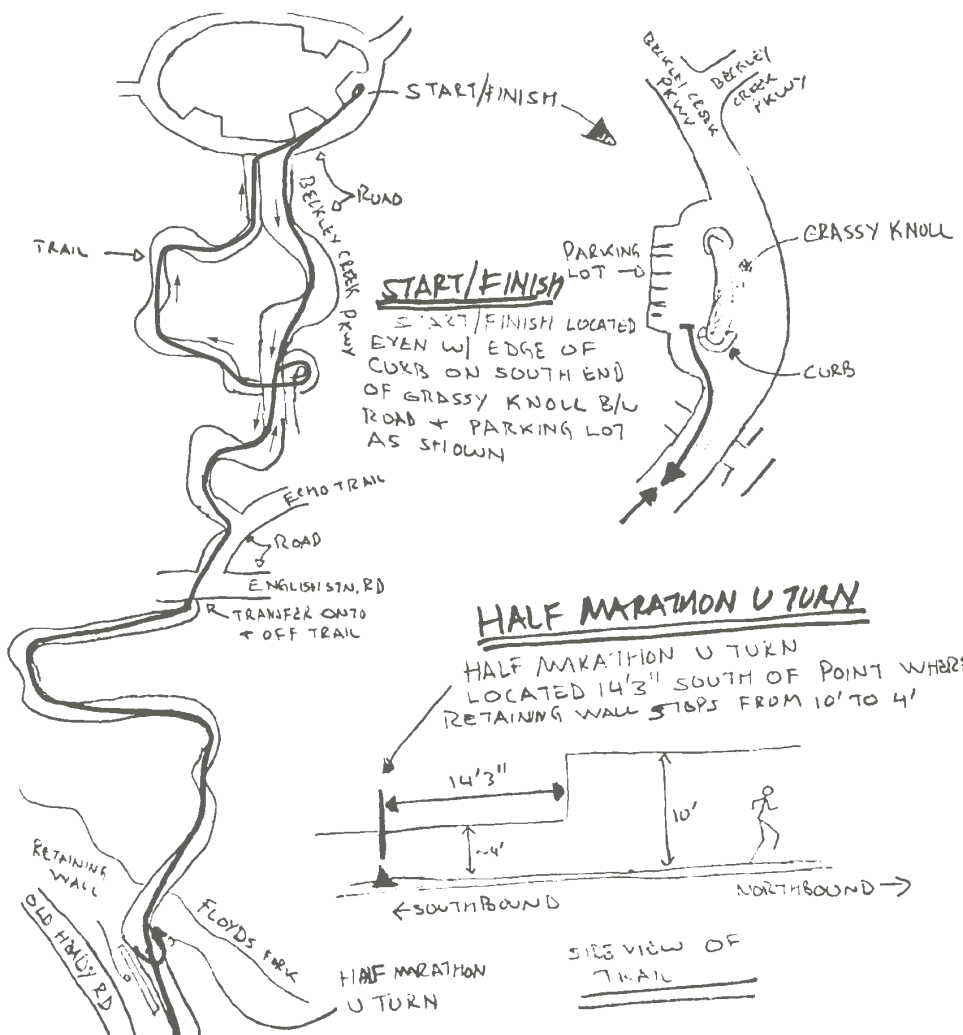 START/FINISH
BECKLEY CREEK PKWY
BECKLEY CREEK PKWY
ROAD
BECKLEY CREEK PKWY
TRAIL
GRASSY KNOLL
PARKING
LOT
CURB
START/FINISH
START/FINISH LOCATED
EVEN W/ EDGE OF
CURB ON SOUTH END
OF GRASSY KNOLL B/W
ROAD + PARKING LOT
AS SHOWN
ECHO TRAIL
ROAD
ENGLISH STN. RD
TRANSFER ONTO
+ OFF TRAIL
HALF MARATHON U TURN
HALF MARATHON U TURN
LOCATED 14'3" SOUTH OF POINT WHERE
RETAINING WALL STEPS FROM 10' TO 4'
14'3"
10'
~4'
←SOUTHBOUND
NORTHBOUND→
SIDE VIEW OF
TRAIL
RETAINING
WALL
OLD HEADY RD
FLOYDS FORK
HALF MARATHON
U TURN